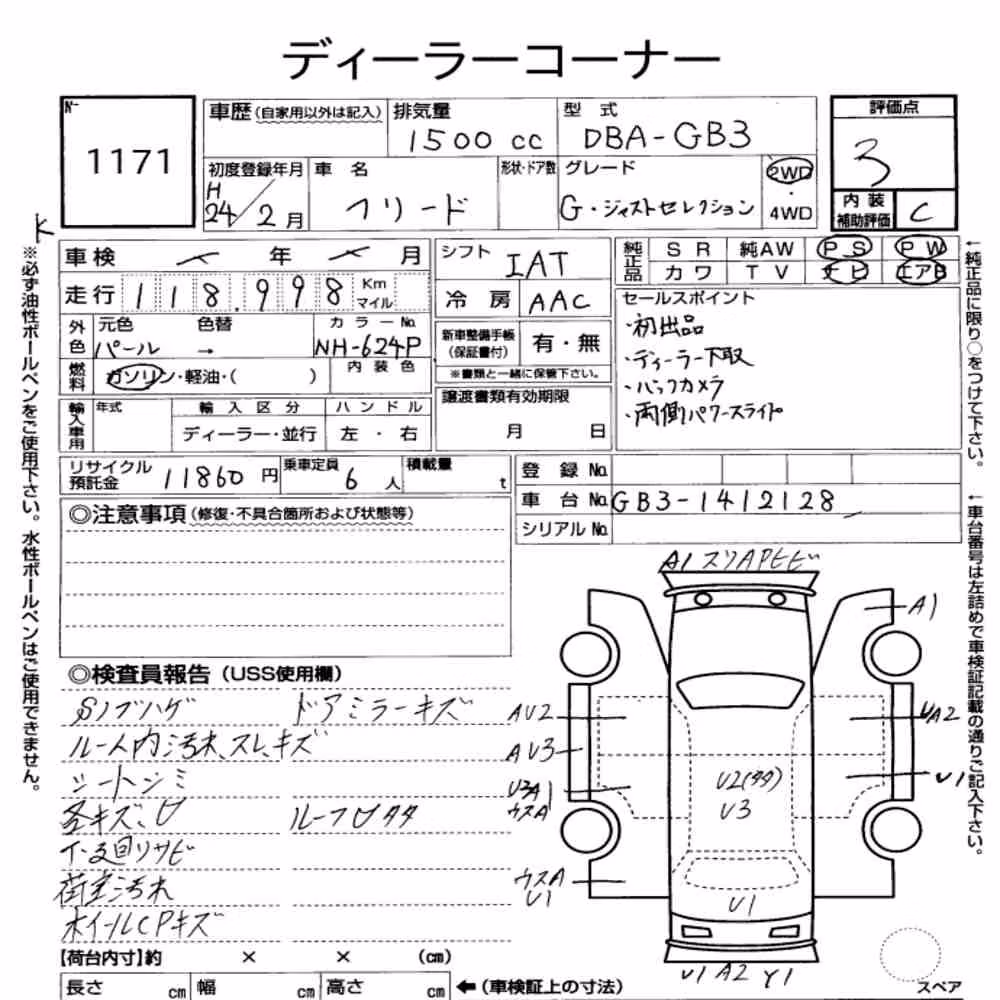 ディーラーコーナー
№
1171
車歴(自家用以外は記入)
排気量
1500 cc
型 式
DBA-GB3
評価点
3
内装補助評価
C
初度登録年月
H
24/2月
車 名
フリード
形状・ドア数
グレード
G・ジャストセレクション
2WD
・
4WD
K
車検 年 月
走行 118,998 Km マイル
シフト
IAT
冷 房
AAC
純正品
SR 純AW PS PW
カワ TV ナビ エアB
外色
元色 色替
パール →
カラーNo.
NH-624P
燃料
ガソリン・軽油・( )
内装色
新車整備手帳
(保証書付)
有・無
※書類と一緒に保管下さい。
セールスポイント
・初出品
・ディーラー下取
・バックカメラ
・両側パワースライド
輸入車用
年式
輸入区分
ディーラー・並行
ハンドル
左 ・ 右
譲渡書類有効期限
月 日
リサイクル預託金
11860円
乗車定員
6人
積載量
t
登 録 No.
車 台 No. GB3-1412128
シリアル No.
◎注意事項(修復・不具合箇所および状態等)
◎検査員報告(USS使用欄)
Sノブハゲ ドアミラーキズ
ルーム内汚れ、スレ、キズ
シートシミ
ルーフ凹タタ
下廻りサビ
荷室汚れ
ホイルCPキズ
A1スリAPヒビ
A1
AU2
UA2
AU3
U1
U2(タタ)
U3
ウスA
ウスA
U1
U1
U1 A2 Y1
スペア
【荷台内寸】約 × × (cm)
長さ cm 幅 cm 高さ cm ←(車検証上の寸法)
※必ず油性ボールペンをご使用下さい。水性ボールペンはご使用できません。
←純正品に限り○をつけて下さい。
←車台番号は左詰めで車検証記載の通りご記入下さい。